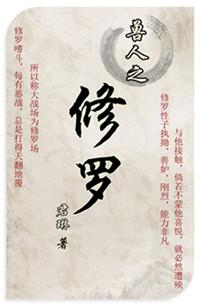 兽人之
修罗
君琳 著
修罗嗜斗，每有恶战，总是打得天翻地覆
所以称大战场为修罗场
修罗性子执拗、善妒、刚烈，能力非凡
与他接触，倘若不蒙他喜悦，就必然遭殃